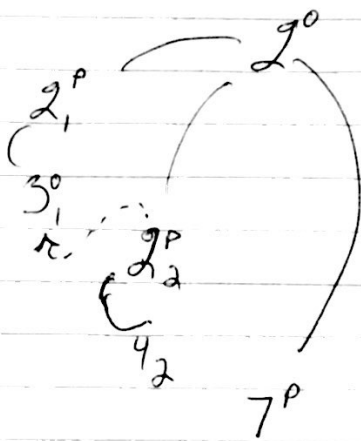 2⁰
2₁ᴾ
3₁⁰
2₂ᴾ
4₂
7ᴾ